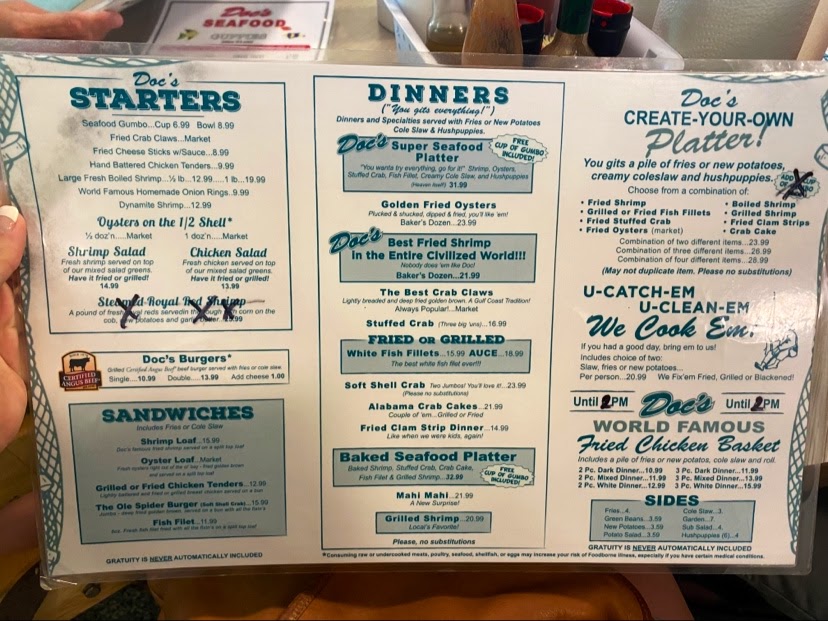 Doc's
SEAFOOD
Doc's
STARTERS
Seafood Gumbo...Cup 6.99 Bowl 8.99
Fried Crab Claws...Market
Fried Cheese Sticks w/Sauce...8.99
Hand Battered Chicken Tenders...9.99
Large Fresh Boiled Shrimp...½ lb...12.99.....1 lb...19.99
World Famous Homemade Onion Rings..9.99
Dynamite Shrimp...12.99
Oysters on the 1/2 Shell*
½ doz'n.....Market 1 doz'n.....Market
Shrimp Salad
Fresh shrimp served on top
of our mixed salad greens.
Have it fried or grilled!
14.99
Chicken Salad
Fresh chicken served on top
of our mixed salad greens.
Have it fried or grilled!
13.99
Steamed Royal Red Shrimp
A pound of fresh royal reds served in the rough with corn on the
cob, new potatoes and garlic
CERTIFIED
ANGUS BEEF
Doc's Burgers*
Grilled Certified Angus Beef burger served with fries or cole slaw.
Single....10.99 Double....13.99 Add cheese 1.00
SANDWICHES
Includes Fries or Cole Slaw
Shrimp Loaf...15.99
Doc's famous fried shrimp served on a split top loaf
Oyster Loaf...Market
Fresh oysters right out of the oil bay - fried golden brown
and served on a split top loaf
Grilled or Fried Chicken Tenders...12.99
Lightly battered and fried or grilled breast chicken served on a bun
The Ole Spider Burger (Soft Shell Crab)...15.99
Jumbo - deep fried golden brown. Served on a bun with all the fixin's
Fish Filet...11.99
Fresh fish filet fried with all the fixin's on a split top loaf
GRATUITY IS NEVER AUTOMATICALLY INCLUDED
DINNERS
("You gits everything!")
Dinners and Specialties served with Fries or New Potatoes
Cole Slaw & Hushpuppies.
Doc's Super Seafood
Platter
FREE
CUP OF GUMBO
INCLUDED!
"You wanta try everything, go for it!" Shrimp, Oysters,
Stuffed Crab, Fish Filet, Creamy Cole Slaw, and Hushpuppies
(Heaven itself!) 31.99
Golden Fried Oysters
Plucked & shucked, dipped & fried, you'll like 'em!
Baker's Dozen...23.99
Doc's Best Fried Shrimp
in the Entire Civilized World!!!
Nobody does 'em like Doc!
Baker's Dozen...21.99
The Best Crab Claws
Lightly breaded and deep fried golden brown. A Gulf Coast Tradition!
Always Popular!...Market
Stuffed Crab (Three big 'uns)...16.99
FRIED OR GRILLED
White Fish Fillets...15.99 AUCE...18.99
The best white fish filet ever!!!
Soft Shell Crab Two Jumbos! You'll love it!...23.99
(Please no substitutions)
Alabama Crab Cakes...21.99
Couple of 'em...Grilled or Fried
Fried Clam Strip Dinner...14.99
Like when we were kids, again!
Baked Seafood Platter
Baked Shrimp, Stuffed Crab, Crab Cake,
Fish Filet & Grilled Shrimp...32.99
FREE
CUP OF GUMBO
INCLUDED!
Mahi Mahi...21.99
A New Surprise!
Grilled Shrimp...20.99
Local's Favorite!
Please, no substitutions
*Consuming raw or undercooked meats, poultry, seafood, shellfish, or eggs may increase your risk of Foodborne illness, especially if you have certain medical conditions.
Doc's
CREATE-YOUR-OWN
Platter!
You gits a pile of fries or new potatoes,
creamy coleslaw and hushpuppies.
ADD
Choose from a combination of:
• Fried Shrimp
• Grilled or Fried Fish Fillets
• Fried Stuffed Crab
• Fried Oysters (market)
• Boiled Shrimp
• Grilled Shrimp
• Fried Clam Strips
• Crab Cake
Combination of two different items...23.99
Combination of three different items...26.99
Combination of four different items...28.99
(May not duplicate item. Please no substitutions)
U-CATCH-EM
U-CLEAN-EM
We Cook Em!
If you had a good day, bring em to us!
Includes choice of two:
Slaw, fries or new potatoes...
Per person...20.99 We Fix'em Fried, Grilled or Blackened!
Until 2PM Doc's Until 2PM
WORLD FAMOUS
Fried Chicken Basket
Includes a pile of fries or new potatos, cole slaw and roll.
2 Pc. Dark Dinner...10.99 3 Pc. Dark Dinner...11.99
2 Pc. Mixed Dinner...11.99 3 Pc. Mixed Dinner...13.99
2 Pc. White Dinner...12.99 3 Pc. White Dinner...15.99
SIDES
Fries...4.
Green Beans...3.59
New Potatoes...3.59
Potato Salad...3.59
Cole Slaw...3.
Garden...7.
Sub Salad...4.
Hushpuppies (6)...4
GRATUITY IS NEVER AUTOMATICALLY INCLUDED